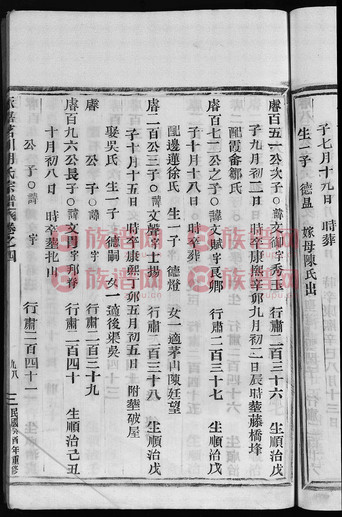 子七月十九日　時葬
生一子　德盈　嫁母陳氏出
廥百五一公次子○諱文御字秀玉　行肅二百三十六　生順治戊
子九月初二日　時卒康熙辛卯九月初二日辰時葬藤橋埄
配霞畲鄒氏
廥百七二公之子○諱文賦字良卿　行肅二百三十七　生順治戊
子十月十八日　時卒葬
配邊蓮徐氏　生一子　德燈　女一適茅山陳廷望
廥二百公三子○諱文聲字士揚　行肅二百三十八　生順治戊
子十月十五日　時卒康熙丁卯五月初五日　附葬破屋
娶吳氏　生一子　德嗣　女一適後渠吳
廥　公　子○諱　字　行肅二百三十九
廥百九六公長子○諱文冑字邦彥　行肅二百四十　生順治己丑
十月初八日　時卒葬
公　子○諱　字　行肅二百四十一
氏宗譜　卷之四
九八
民國癸酉年重修
族譜网